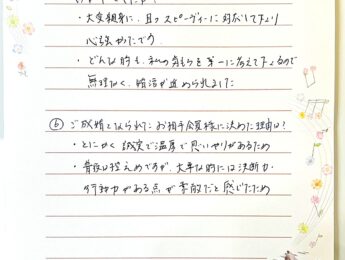 ・大変親身に、且つスピーディーに対応して下さり
心強かったです。
・どんな時も、私の気もちを第一に考えて下さるので
無理なく、婚活が進められました
⑥ ご成婚となられたお相手会員様に決めた理由は?
・とにかく誠実で温厚で思いやりがあるため
・普段は控えめですが、大事な時には決断力・
行動力がある点が素敵だと感じたため